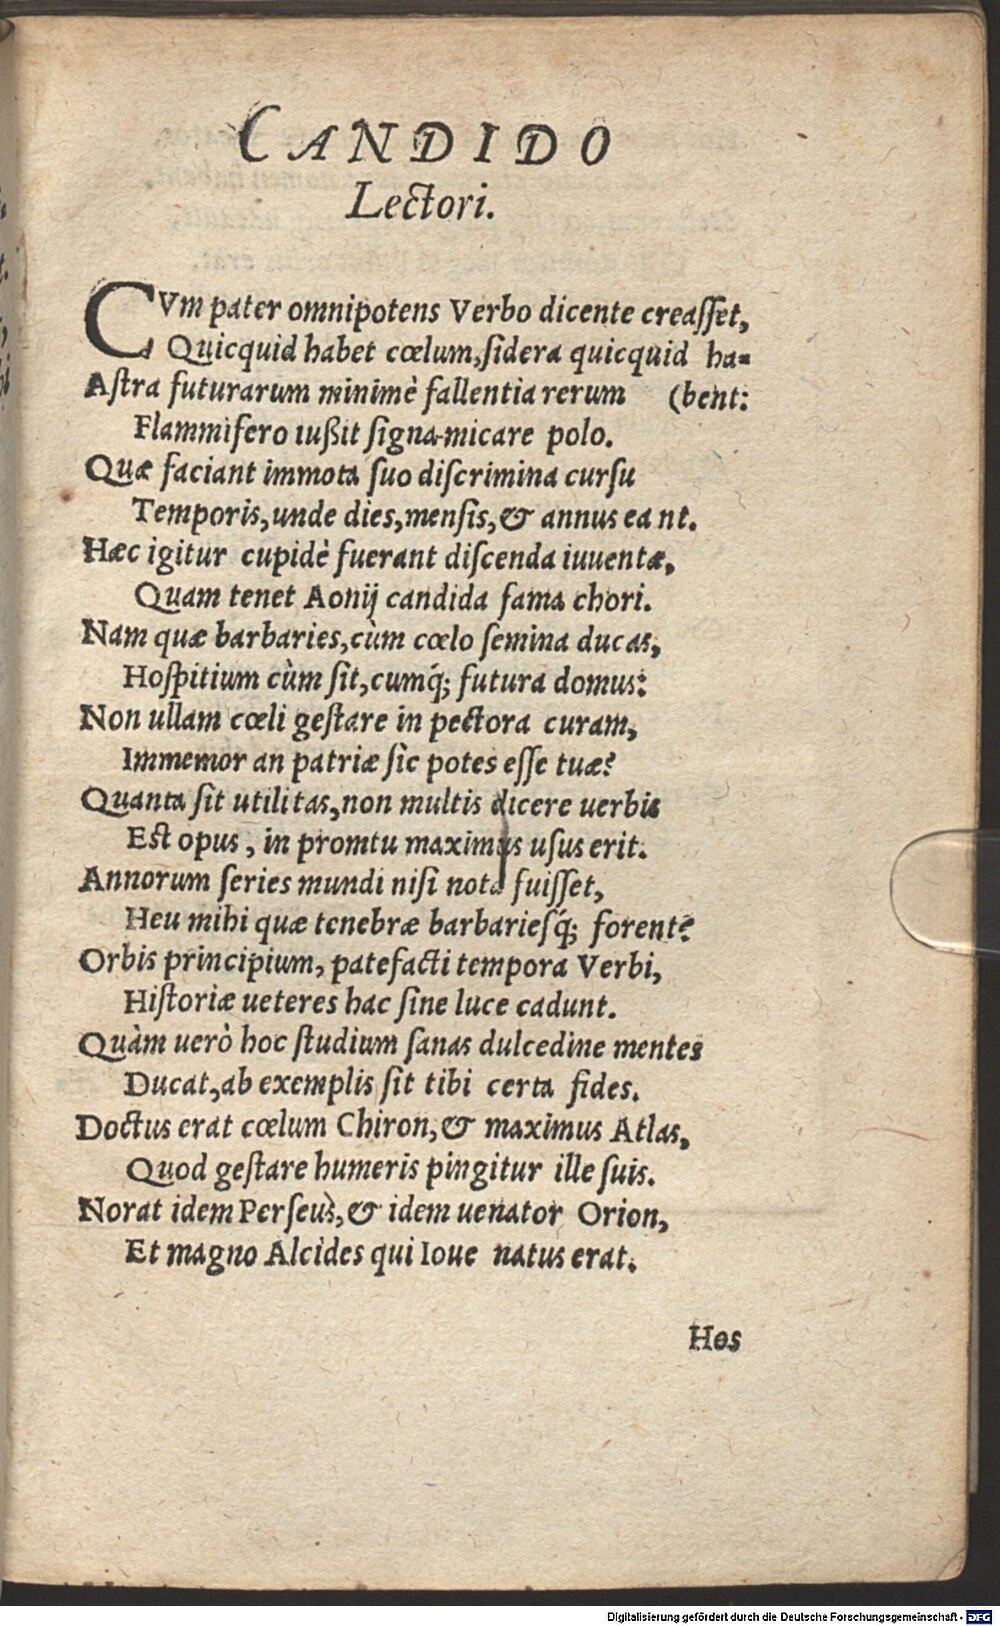 CANDIDO
Lectori.
CVm pater omnipotens Verbo dicente creaſſet,
Quicquid habet cœlum, ſidera quicquid ha=
Aſtra futurarum minimè fallentia rerum (bent:
Flammifero iußit ſigna micare polo.
Quæ faciant immota ſuo diſcrimina curſu
Temporis, unde dies, menſis, & annus eant.
Hæc igitur cupidè fuerant diſcenda iuuentæ,
Quam tenet Aonij candida fama chori.
Nam quæ barbaries, cùm cœlo ſemina ducas,
Hoſpitium cùm ſit, cumq́; futura domus:
Non ullam cœli geſtare in pectora curam,
Immemor an patriæ ſic potes eſſe tuæ?
Quanta ſit utilitas, non multis dicere uerbis
Eſt opus, in promtu maximus uſus erit.
Annorum ſeries mundi niſi nota fuiſſet,
Heu mihi quæ tenebræ barbarieſq́; forent?
Orbis principium, patefacti tempora Verbi,
Hiſtoriæ ueteres hac ſine luce cadunt.
Quàm uerò hoc ſtudium ſanas dulcedine mentes
Ducat, ab exemplis ſit tibi certa fides.
Doctus erat cœlum Chiron, & maximus Atlas,
Quod geſtare humeris pingitur ille ſuis.
Norat idem Perſeùs, & idem uenator Orion,
Et magno Alcides qui Ioue natus erat.
Hos
Digitalisierung gefördert durch die Deutsche Forschungsgemeinschaft - DFG